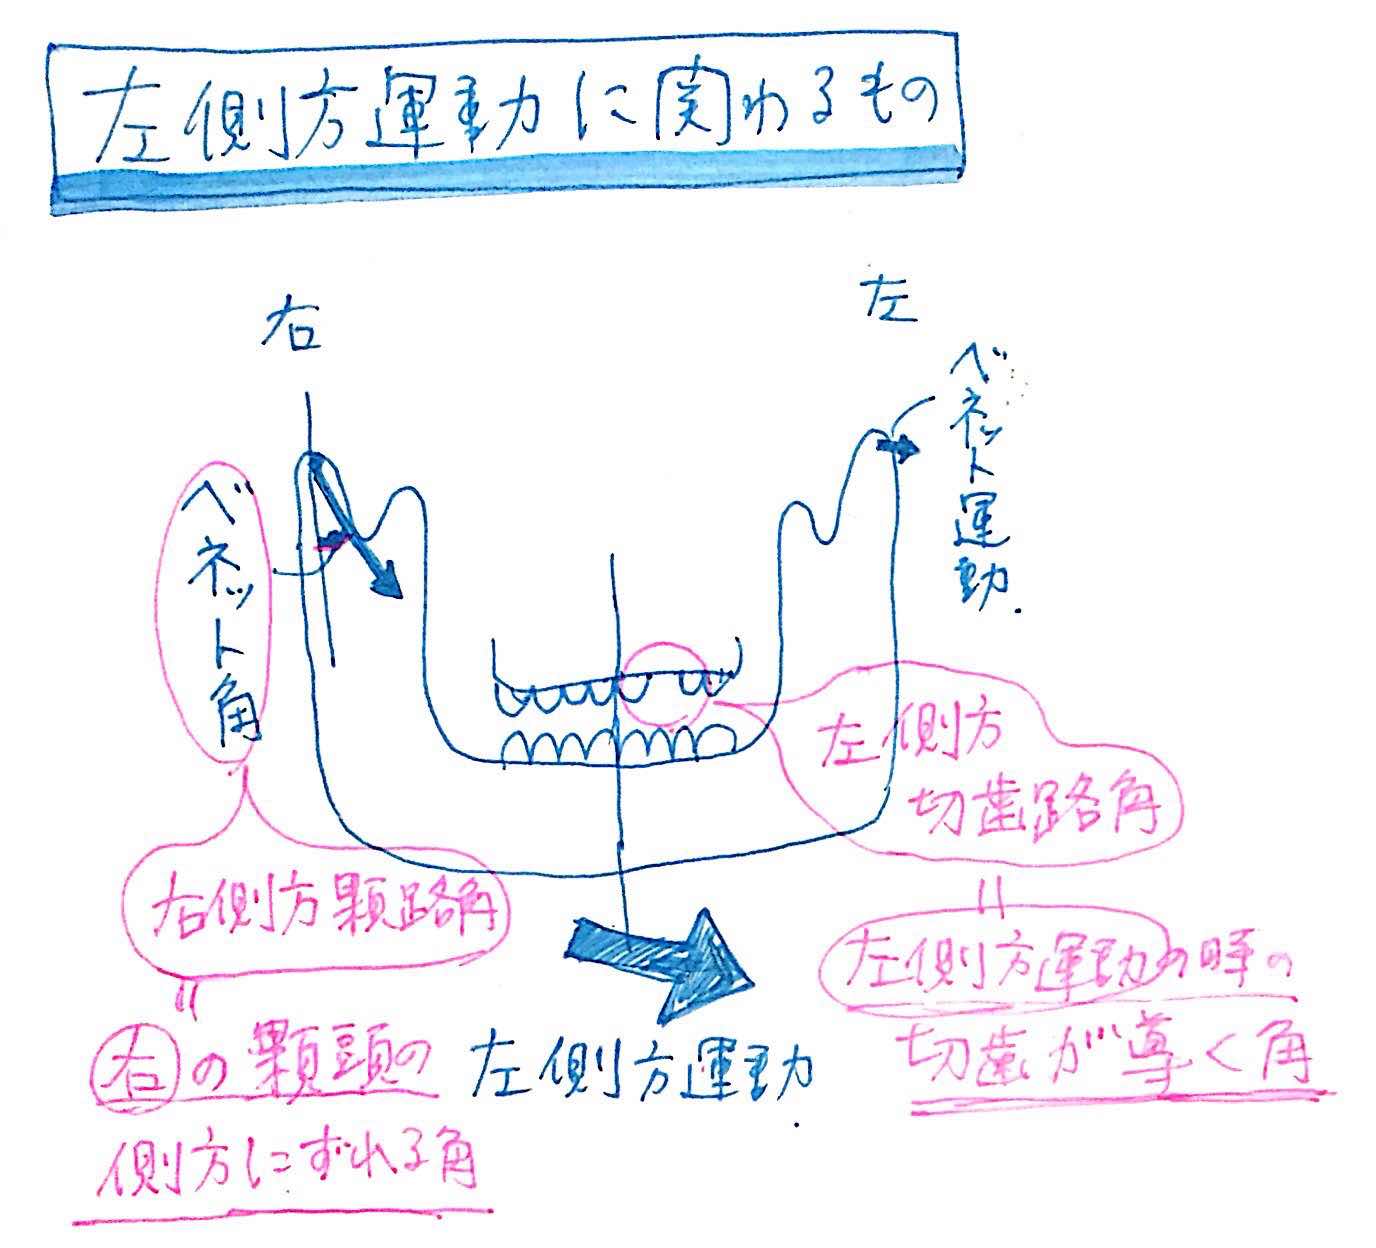 左側方運動に関わるもの
右
左
ベネット運動.
ベネット角
左側方
切歯路角
右側方顆路角
〃
右の顆頭の
側方にずれる角
左側方運動.
〃
左側方運動の時の
切歯が導く角